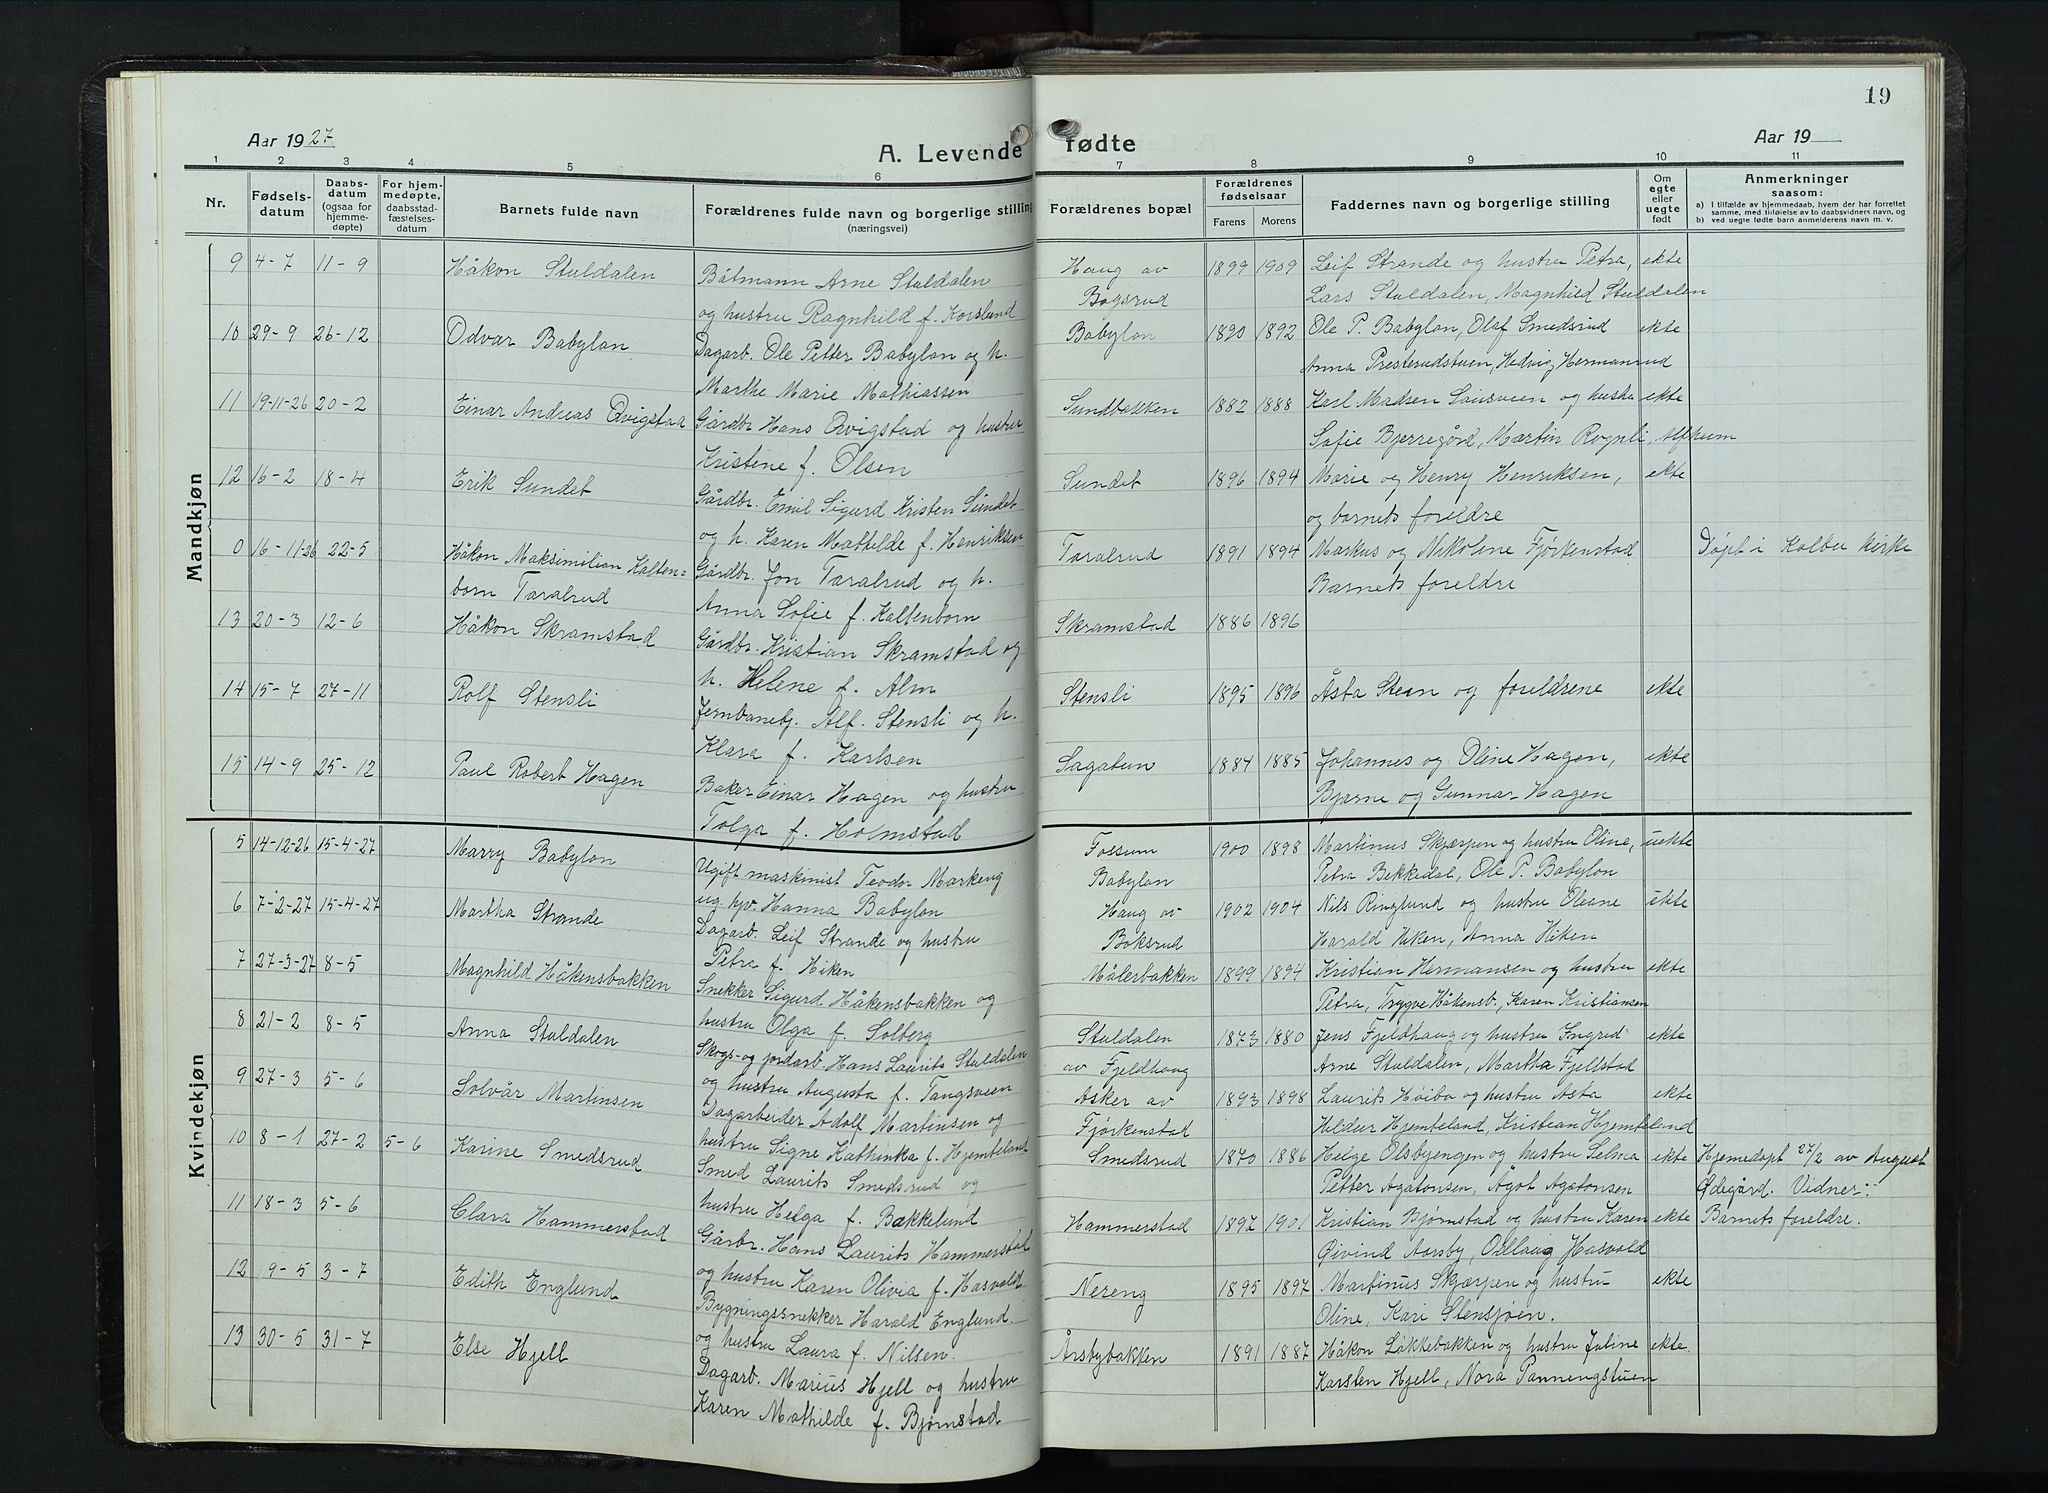 19
Aar 1927
A. Levende fødte
Aar 19
1 2 3 4 5 6 7 8 9 10 11
Nr.
Fødsels-
datum
Daabs-
datum
(ogsaa for
hjemme-
døpte)
For hjem-
medøpte,
daabsstad-
fæstelses-
datum
Barnets fulde navn
Forældrenes fulde navn og borgerlige stilling
(næringsvei)
Forældrenes bopæl
Forældrenes
fødselsaar
Farens Morens
Faddernes navn og borgerlige stilling
Om
egte
eller
uegte
født
Anmerkninger
saasom:
a) I tilfælde av hjemmedaab, hvem der har forrettet
samme, med tilføielse av to daabsvidners navn, og
b) ved uegte fødte barn anmelderens navn m. v.
Mandkjøn
9 4-7 11-9 Håkon Stuldalen Båtmann Arne Stuldalen Haug av 1899 1909 Leif Strande og hustru Petra, ekte
og hustru Ragnhild f. Korslund Bogsrud Lars Stuldalen, Magnhild Stuldalen
10 29-9 26-12 Odvar Babylon Dagarb. Ole Petter Babylon og h. Babylon 1890 1892 Ole P. Babylon, Olaf Smedsrud ekte
Marthe Marie Mathiassen Anna Presterudstuen, Hedvig Hermanrud
11 19-11-26 20-2 Einar Andreas Qvigstad Gårdbr Hans Qvigstad og hustru Sundbakken 1882 1888 Karl Madsen og hustru ekte
Kristene f. Olsen Sofie Bjerregård, Martin Rognli, Alfheim
12 16-2 18-4 Erik Sundet Gårdbr. Emil Sigurd Kristen Sundet Sundet 1896 1894 Marie og Henry Henriksen, ekte
og h. Karen Mathilde f. Henriksen og barnets foreldre
0 16-11-26 22-5 Håkon Maksimilian Kalten= Gårdbr. Jon Taralrud og h. Taralrud 1891 1894 Markus og Nikoline Fjørkenstad Døpt i Kolbu kirke
born Taralrud Anna Sofie f. Kaltenborn Barnets foreldre
13 20-3 12-6 Håkon Skramstad Gårdbr. Kristian Skramstad og Skramstad 1886 1896
h. Helene f. Alm
14 15-7 27-11 Rolf Stensli Jernbanebj. Alf. Stensli og h. Stensli 1895 1896 Åsta Steen og foreldrene ekte
Klara f. Karlsen
15 14-9 25-12 Paul Robert Hagen Baker Einar Hagen og hustru Sagatun 1884 1885 Johannes og Oline Hagen, ekte
Tolga f. Holmstad Bjarne og Gunnar Hagen
Kvindekjøn
5 14-12-26 15-4-27 Marry Babylon Ugift maskinist Teodor Markeng Fossum 1900 1898 Martinus Skjærpen og hustru Oline, uekte
ug. hpv. Hanna Babylon Babylon Petra Bekkedal, Ole P. Babylon
6 7-2-27 15-4-27 Martha Strande Dagarb. Leif Strande og hustru Haug av 1902 1904 Nils Ringlund og hustru Oleane ekte
Petra f. Hiken Boksrud Harald Hiken, Anna Hiken
7 27-3-27 8-5 Magnhild Håkensbakken Snekker Sigurd Håkensbakken og Målerbakken 1899 1894 Kristian Hermansen og hustru ekte
hustru Olga f. Solberg Petra, Trygve Håkensb., Karen Kristiansen
8 21-2 8-5 Anna Stuldalen Skogs- og jordarb. Hans Laurits Stuldalen Stuldalen 1873 1880 Jens Fjeldhaug og hustru Ingrid ekte
og hustru Augusta f. Tangsveen av Fjeldhaug Arne Stuldalen, Martha Fjellstad
9 27-3 5-6 Solvår Martinsen Dagarbeider Adolf Martinsen og Asker av 1893 1898 Laurits Høibø og hustru Asta ekte
hustru Signe Kathinka f. Hjembeland Fjørkenstad Heldur Hjembeland, Kristian Hjembeland
10 8-1 27-2 5-6 Karine Smedsrud Smed Laurits Smedsrud og Smedsrud 1870 1886 Helge Olsbyengen og hustru Selma ekte Hjemedøpt 27/2 av August
hustru Helga f. Bakkelund Petter Agatonsen, Ågot Agatonsen Ødegård. Vidner:
11 18-3 5-6 Clara Hammerstad Gårbr. Hans Laurits Hammerstad Hammerstad 1897 1901 Kristian Bjørnstad og hustru Karen ekte Barnets foreldre.
og hustru Karen Olivia f. Hasvold Øivind Aarsby, Odlaug Hasvold
12 9-5 3-7 Edith Englund Bygningssnekker Harald Englund. Nereng 1895 1897 Martinus Skjærpen og hustru ekte
og hustru Laura f. Nilsen. Oline, Kari Stensjøen.
13 30-5 31-7 Else Hjell Dagarb. Marius Hjell og hustru Årsbybakken 1891 1887 Håkon Løkkebakken og hustru Juline ekte.
Karen Mathilde f. Bjørnstad Karsten Hjell, Nora Panningstuen